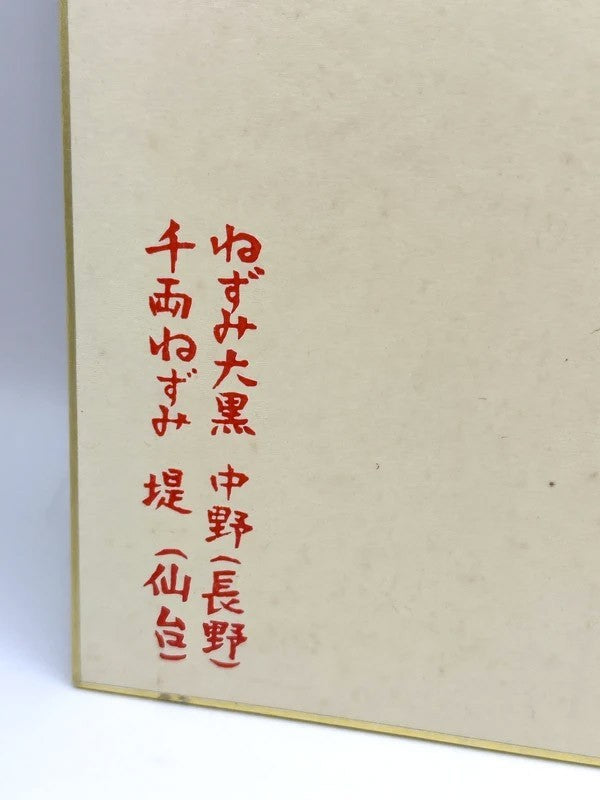 ねずみ大黒 中野(長野)
千両ねずみ 堤 (仙台)